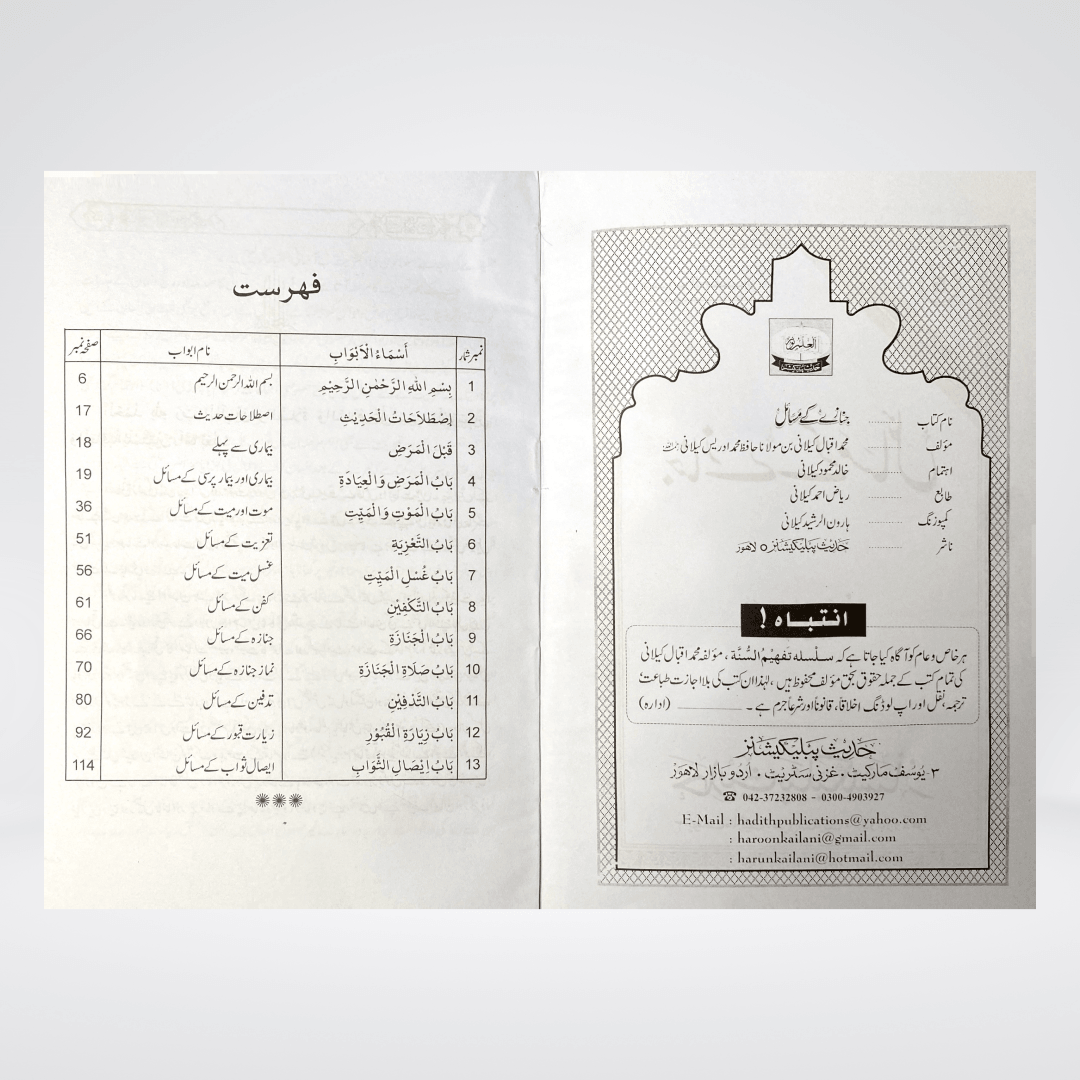 نام کتاب ............ جنازے کے مسائل
مؤلف ............ محمد اقبال کیلانی بن مولانا حافظ محمد ادریس کیلانی
اہتمام ............ خالد محمود کیلانی
طابع ............ ریاض احمد کیلانی
کمپوزنگ ............ ہارون الرشید کیلانی
ناشر ............ حدیث پبلیکیشنز ○ لاہور
انتباہ !
ہر خاص و عام کو آگاہ کیا جاتا ہے کہ سلسلہ تفہیم السنۃ ، مؤلفہ محمد اقبال کیلانی
کی تمام کتب کے جملہ حقوق بحق مؤلف محفوظ ہیں ، لہٰذا ان کتب کی بلا اجازت طباعت ،
ترجمہ، نقل اور اپ لوڈنگ اخلاقاً، قانوناً اور شرعاً جرم ہے ۔ (ادارہ)
حدیث پبلیکیشنز
۳- یوسف مارکیٹ ، غزنی سٹریٹ ، اردو بازار لاہور
☎ 042-37232808 - 0300-4903927
E-Mail : hadithpublications@yahoo.com
: haroonkailani@gmail.com
: harunkailani@hotmail.com
فہرست
نمبر شمار أَسْمَاءُ الْاَبْوَابِ نام ابواب صفحہ نمبر
1 بِسْمِ اللّٰهِ الرَّحْمٰنِ الرَّحِيْمِ بسم اللہ الرحمن الرحیم 6
2 إصْطَلَاحَاتُ الْحَدِيْثِ اصطلاحات حدیث 17
3 قَبْلَ الْمَرَضِ بیماری سے پہلے 18
4 بَابُ الْمَرَضِ وَالْعِيَادَةِ بیماری اور بیمار پرسی کے مسائل 19
5 بَابُ الْمَوْتِ وَالْمَيِّتِ موت اور میت کے مسائل 36
6 بَابُ التَّعْزِيَةِ تعزیت کے مسائل 51
7 بَابُ غُسْلِ الْمَيِّتِ غسل میت کے مسائل 56
8 بَابُ التَّكْفِيْنِ کفن کے مسائل 61
9 بَابُ الْجَنَازَةِ جنازہ کے مسائل 66
10 بَابُ صَلَاةِ الْجَنَازَةِ نماز جنازہ کے مسائل 70
11 بَابُ التَّدْفِيْنِ تدفین کے مسائل 80
12 بَابُ زِيَارَةِ الْقُبُوْرِ زیارت قبور کے مسائل 92
13 بَابُ اِيْصَالِ الثَّوَابِ ایصال ثواب کے مسائل 114